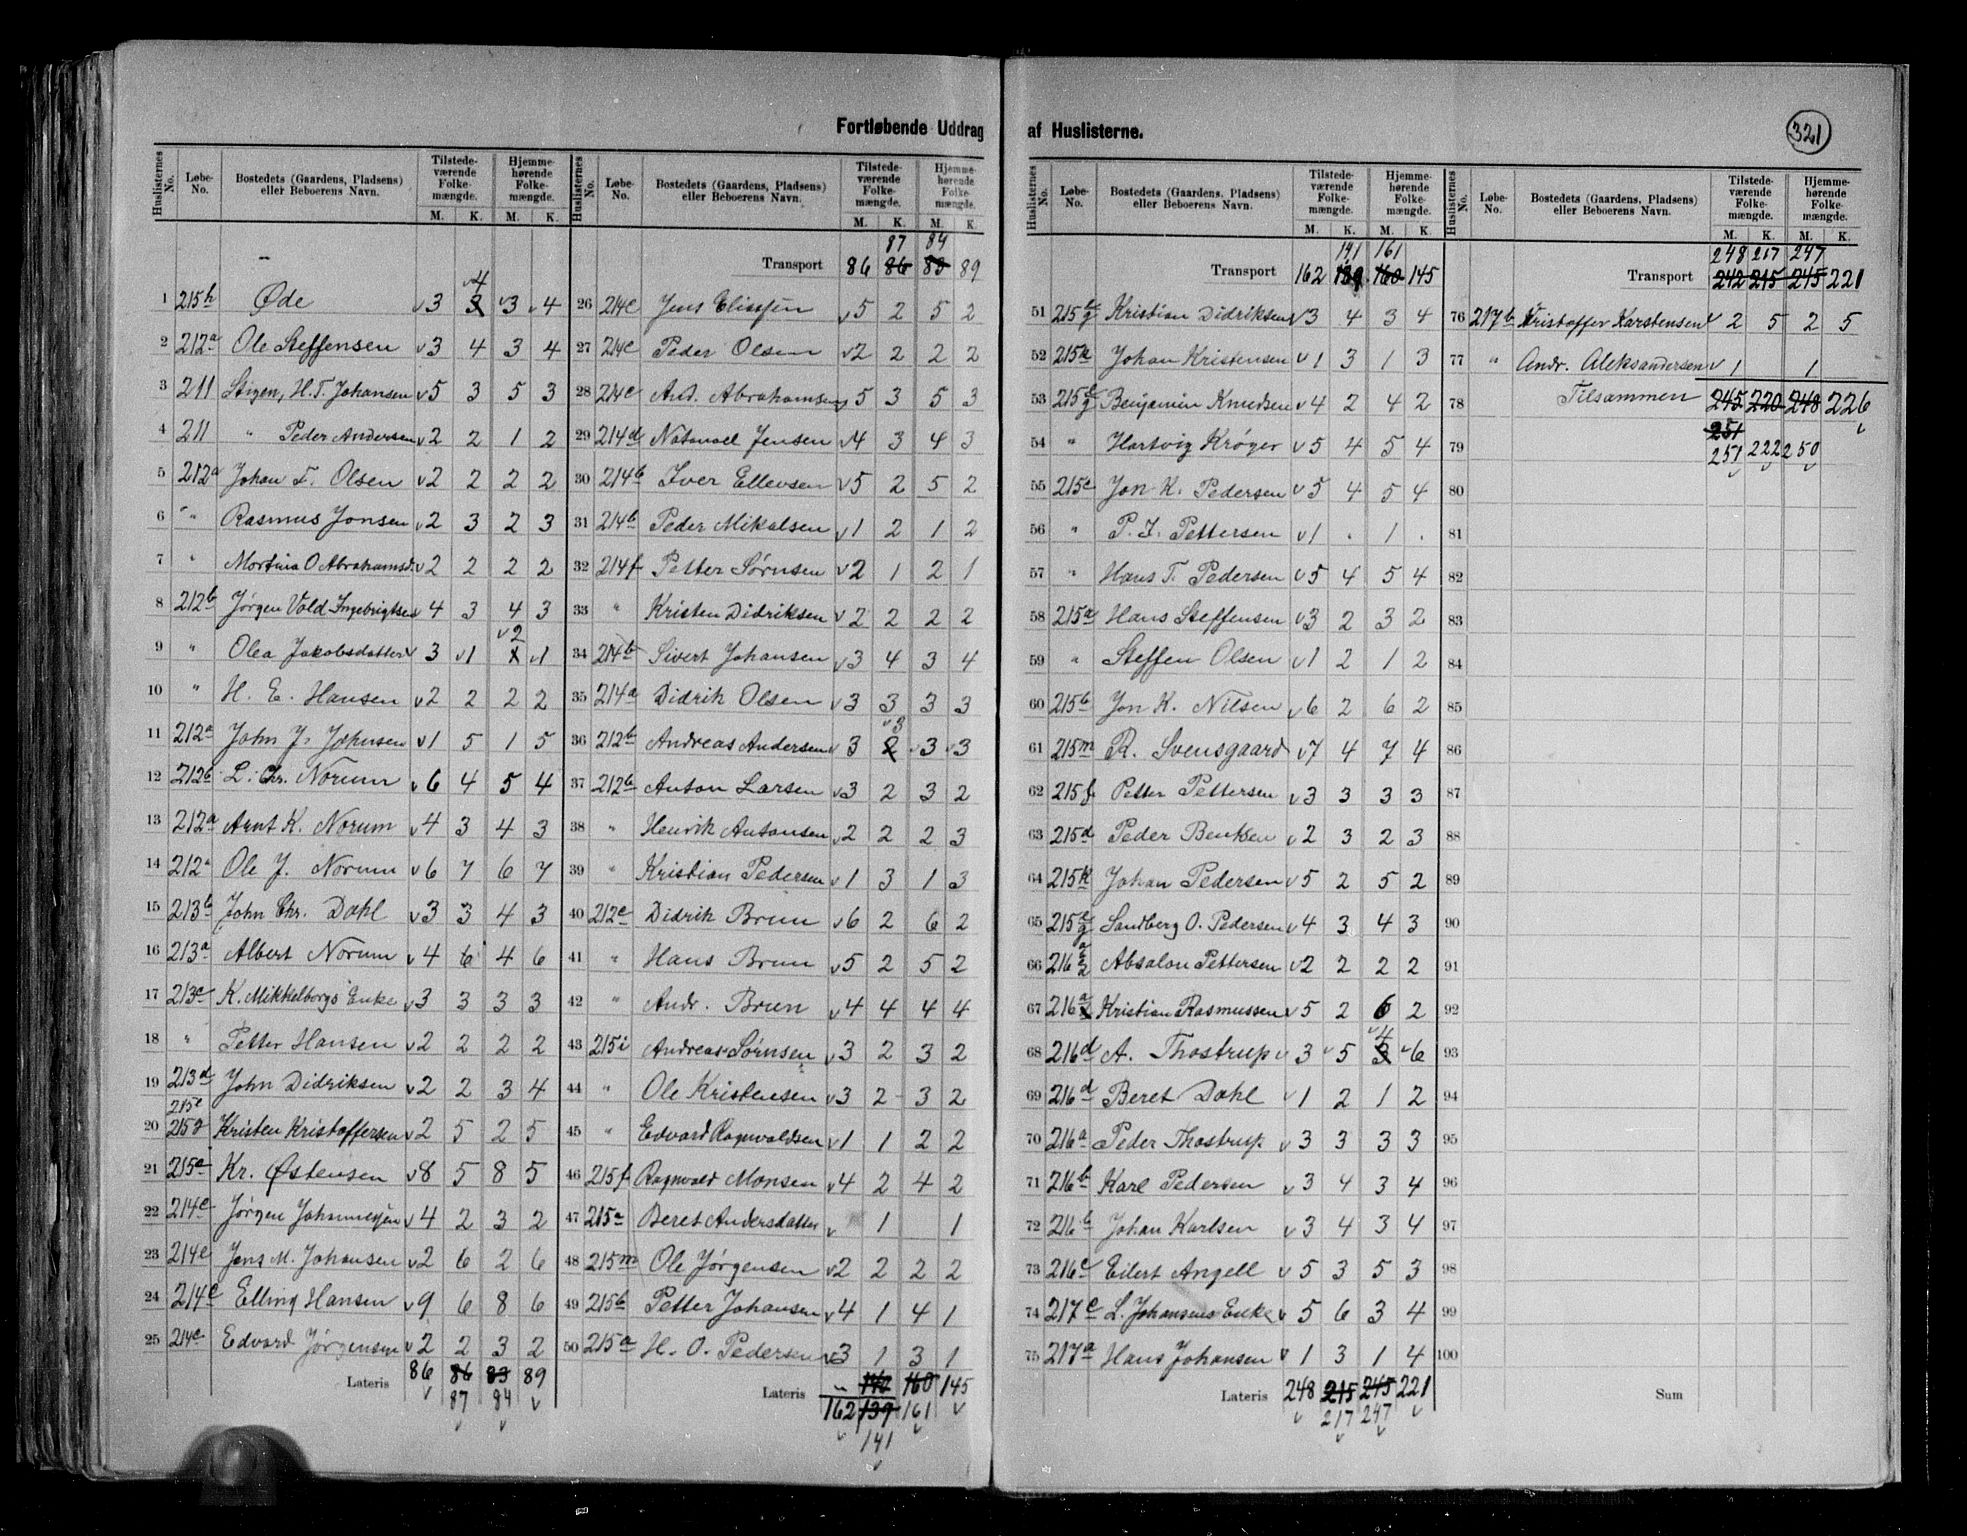 Fortløbende Uddrag af Huslisterne.
321
Huslisternes No. Løbe-No. Bostedets (Gaardens, Pladsens) eller Beboerens Navn. Tilstedeværende Folkemængde. M. K. Hjemmehørende Folkemængde. M. K.
4
1 215h Øde v3 3 v3 v4
2 212a Ole Steffensen v3 4 3 4
3 211 Stigen, H. T. Johansen v5 3 5 3
4 211 " Peder Andersen v2 2 1 2
5 212a Johan T. Olsen v2 2 2 2
6 " Rasmus Jonsen v2 3 2 3
7 " Mortina O Abrahamsd. v2 2 2 2
8 212b Jørgen Vold Ingebrigtsen 4 3 4 3
v2
9 " Olea Jakobsdatter v 3 v1 x v1
10 " H. E. Hansen v2 2 2 2
11 212a John J. Johnsen v1 5 1 5
12 212b L. Chr. Norum v6 4 5 4
13 212a Arnt K. Norum v4 3 4 3
14 212a Ole J. Norum v6 7 6 7
15 213b John Chr. Dahl v3 3 4 3
16 213a Albert Norum v4 6 4 6
17 213c K. Mikkelborgs Enke v3 3 3 3
18 " Petter Hansen v2 2 2 2
19 213d John Didriksen v2 2 3 4
215e
20 215g Kristen Kristoffersen v2 5 2 5
21 215e Kr. Østensen v8 5 8 5
22 214c Jørgen Johannessen v4 2 3 2
23 214e Jens M. Johansen v2 6 2 6
24 214c Elling Hansen v9 6 8 6
25 214c Edvard Jørgensen v2 2 3 2
Lateris 86 86 83 89
v 87 84 v
Huslisternes No. Løbe-No. Bostedets (Gaardens, Pladsens) eller Beboerens Navn. Tilstedeværende Folkemængde. M. K. Hjemmehørende Folkemængde. M. K.
87 84
Transport 86 86 83 89
26 214c Jens Elissen v5 2 5 2
27 214c Peder Olsen v2 2 2 2
28 214c And. Abrahamsen 5 3 5 3
29 214d Natanael Jensen v4 3 4 3
30 214b Iver Ellevsen v5 2 5 2
31 214b Peder Mikalsen v1 2 1 2
32 214f Petter Sørnsen v2 1 2 1
33 " Kristen Didriksen v2 2 2 2
34 214b Sivert Johansen v3 4 3 4
35 214a Didrik Olsen v3 3 3 3
v3
36 212b Andreas Andersen v 3 2 3 v3
37 212b Anton Larsen v3 2 3 2
38 " Henrik Antonsen v2 2 2 3
39 " Kristian Pedersen v1 3 1 3
40 212c Didrik Brun v6 2 6 2
41 " Hans Brun v5 2 5 2
42 " Andr. Brun v4 4 4 4
43 215i Andreas Sørnsen v3 2 3 2
44 " Ole Kristensen v3 2 3 2
45 " Edvard Ragnvaldsen v1 1 2 2
46 215f Ragnvald Monsen v4 2 4 2
47 215a Beret Andersdatter v 1 1
48 215m Ole Jørgensen v2 2 2 2
49 215b Petter Johansen v4 1 4 1
50 215a H. O. Pedersen v3 1 3 1
Lateris 140 160 145
162 139 161 v
v 141 v
v
Huslisternes No. Løbe-No. Bostedets (Gaardens, Pladsens) eller Beboerens Navn. Tilstedeværende Folkemængde. M. K. Hjemmehørende Folkemængde. M. K.
141 161
Transport 162 139 160 145
51 215 g Kristian Didriksen v3 4 3 4
52 215k Johan Kristensen v1 3 1 3
53 215 g Benjamin Knudsen v4 2 4 2
54 " Hartvig Krøger v5 4 5 4
55 215c Jon K. Pedersen v5 4 5 4
56 " P. J. Pettersen v1 . 1 .
57 " Hans T. Pedersen v5 4 5 4
58 215a Hans Steffensen v3 2 3 2
59 " Steffen Olsen v1 2 1 2
60 215b Jon K. Nilsen v6 2 6 2
61 215m R. Svensgaard v7 4 7 4
62 215f Petter Pettersen v3 3 3 3
63 215d Peder Benksen v2 3 2 3
64 215k Johan Pedersen v5 2 5 2
65 215 g Sandberg O. Pedersen v4 3 4 3
66 216 Absalon Pettersen v2 2 2 2
67 216a Kristian Rasmussen v5 2 6 2
v4
68 216d A. Thostrup v 3 v5 3 v6
69 216d Beret Dahl v1 2 1 2
70 216a Peder Thostrup v3 3 3 3
71 216b Karl Pedersen v3 4 3 4
72 216b Johan Karlsen v3 4 3 4
73 216c Eilert Angell v 5 3 5 3
74 217c L. Johansens Enke v 5 6 3 4
75 217a Hans Johansen v 1 3 1 4
Lateris 248 215 245 221
v 217 247 v
v v
Huslisternes No. Løbe-No. Bostedets (Gaardens, Pladsens) eller Beboerens Navn. Tilstedeværende Folkemængde. M. K. Hjemmehørende Folkemængde. M. K.
248 217 247
Transport 242 215 245 221
76 217b Kristoffer Karstensen v 2 5 2 5
77 " Andr. Aleksandersen v 1 1
78 Tilsammen 245 220 248 226
251 v
79 251 222 250
v v v
80
81
82
83
84
85
86
87
88
89
90
91
92
93
94
95
96
97
98
99
100
Sum